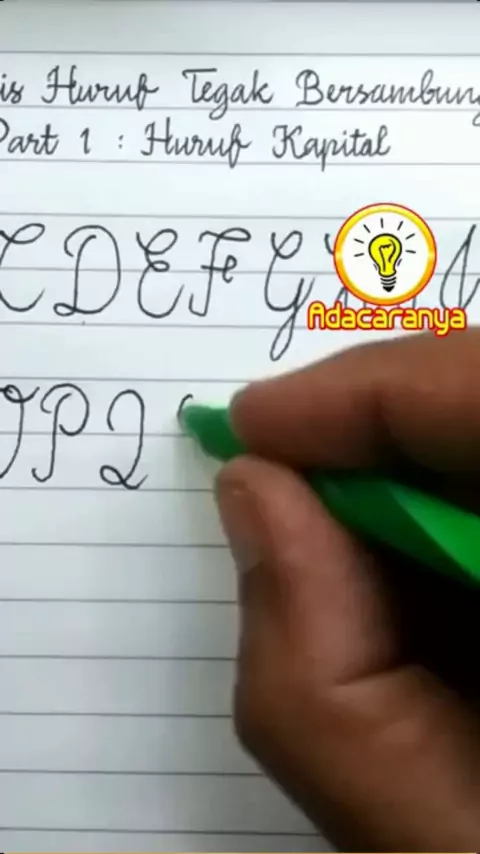 is Huruf Tegak Bersambung
Part 1 : Huruf Kapital
C D E F G
Adacaranya
O P Q